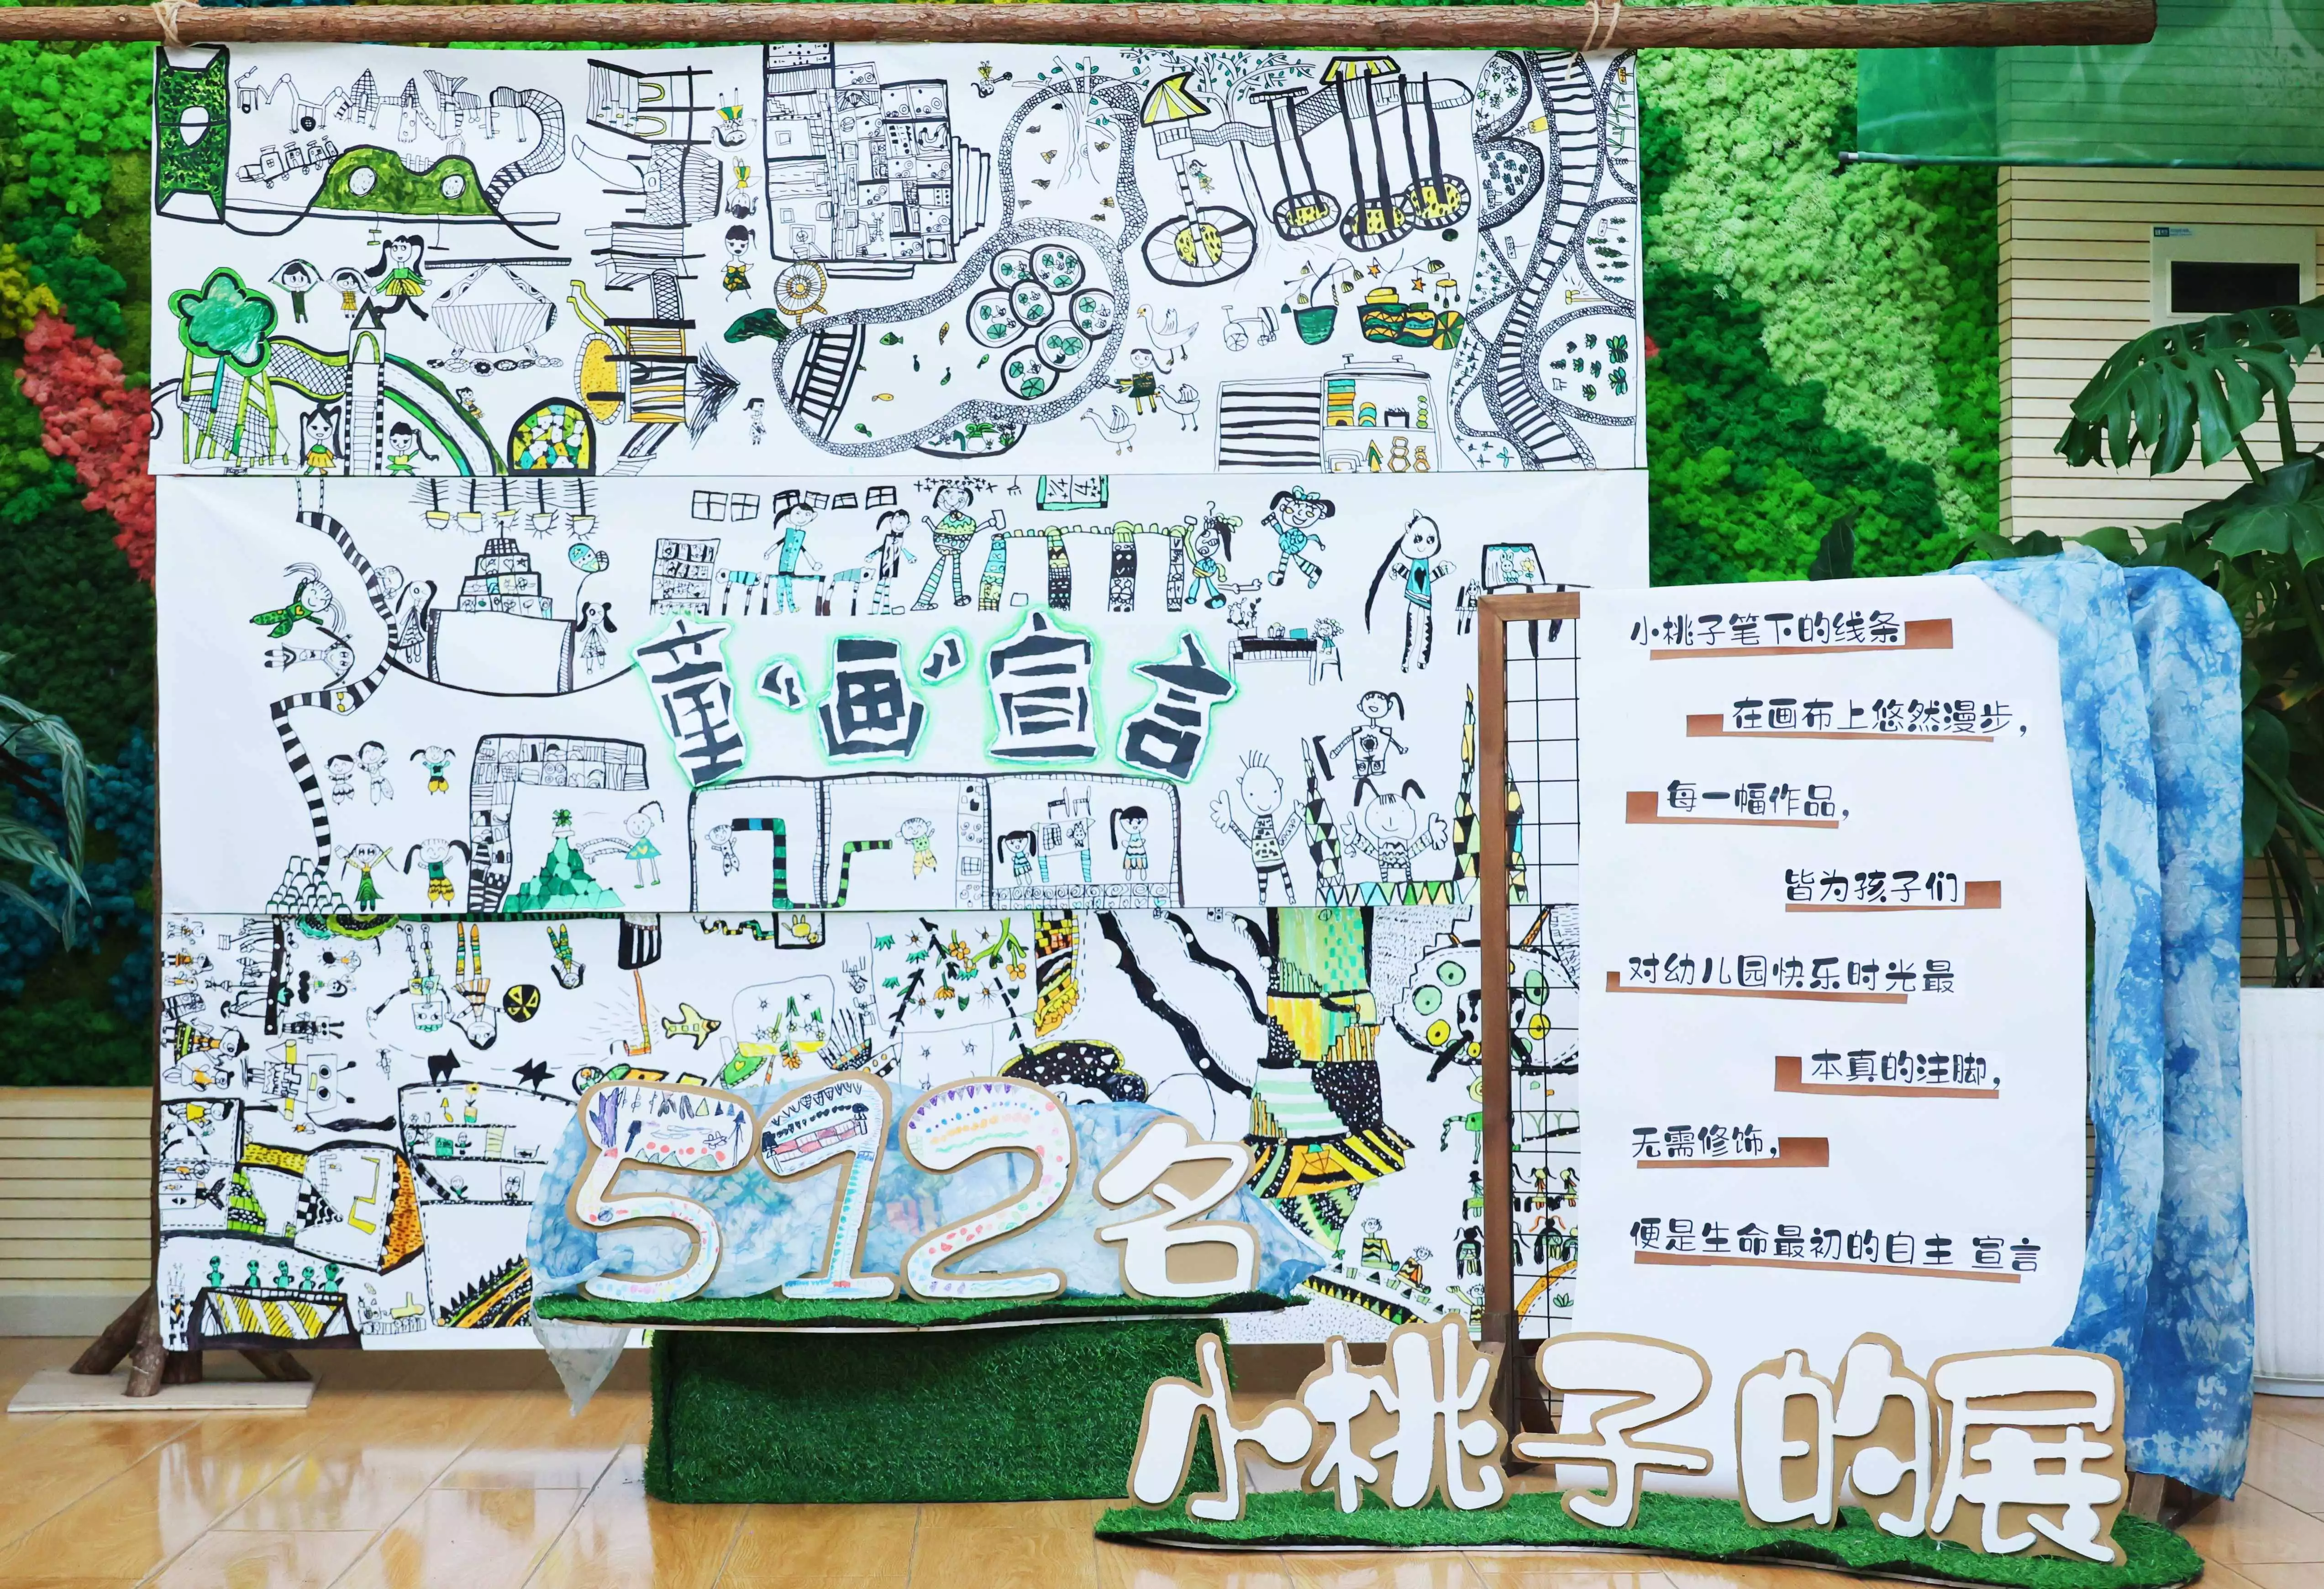 童“画”宣言
小桃子笔下的线条
在画布上悠然漫步，
每一幅作品，
皆为孩子们
对幼儿园快乐时光最
本真的注脚，
无需修饰，
便是生命最初的自主 宣言
512名
小桃子的展